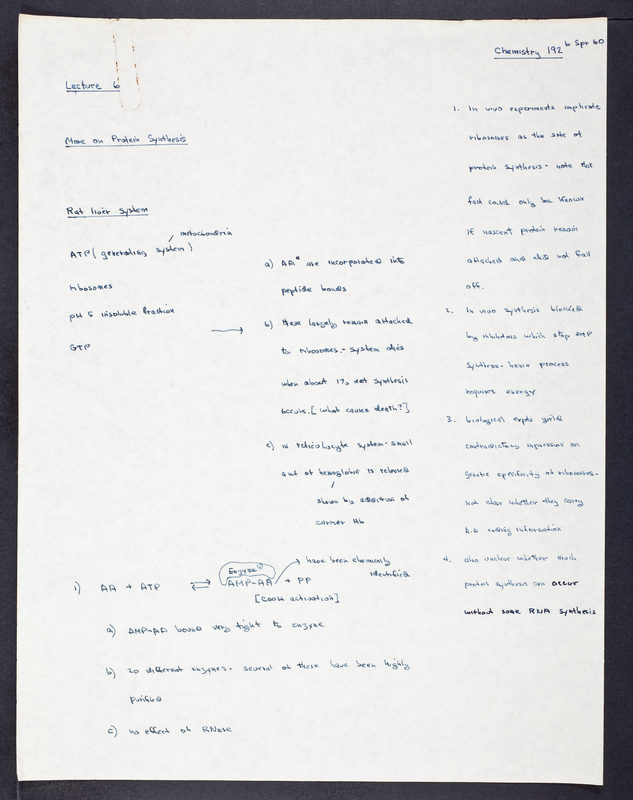 Chemistry 192 b Spr 60
Lecture 6
More on Protein Synthesis
Rat liver system
mitochondria
ATP (generating system)
ribosomes
pH 5 insoluble fraction
GTP
a) AA* are incorporated into
peptide bonds
b) these largely remain attached
to ribosomes. - system dies
when about 1% net synthesis
occurs. [what causes death?]
c) in reticulocyte system - small
amt of hemoglobin is released
shown by addition of
carrier Hb
1. In vivo experiments implicate
ribosomes as the site of
protein synthesis - note this
fact could only be known
if nascent protein remain
attached and did not fall
off.
2. In vivo synthesis blocked
by inhibitors which stop ATP
synthesis - hence process
requires energy
3. biological expts yield
contradictory impression on
genetic specificity of ribosomes -
not clear whether they carry
A.A making information
4. also unclear whether much
protein synthesis can occur
without some RNA synthesis
have been chemically
identified
Enzyme
1) AA + ATP ⇌ AMP-AA + PP
[COOH activation]
a) AMP-AA bound very tight to enzyme
b) 20 different enzymes - several of these have been highly
purified
c) no effect of RNase